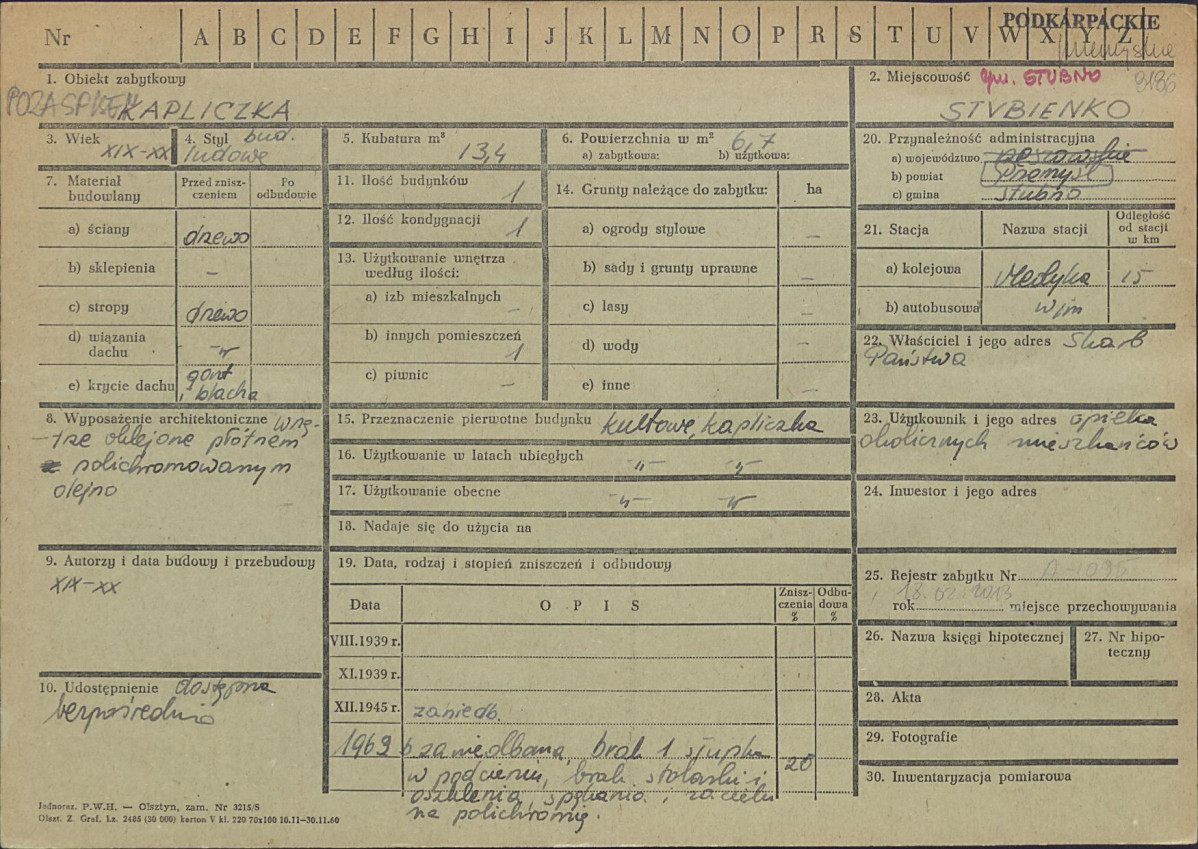 Nr A B C D E F G H I J K L M N O P R S T U V W X Y Z
PODKARPACKIE
przemyskie
1. Obiekt zabytkowy
POZA SPISEM
KAPLICZKA
2. Miejscowość gm. STUBNO 9186
STUBIENKO
3. Wiek
XIX-XX
4. Styl bud.
ludowe
5. Kubatura m³
13,4
6. Powierzchnia w m² 6,7
a) zabytkowa: b) użytkowa:
7. Materiał budowlany
Przed zniszczeniem
Po odbudowie
a) ściany drzewo
b) sklepienia –
c) stropy drzewo
d) wiązania dachu –"–
e) krycie dachu gont, blacha
8. Wyposażenie architektoniczne wnę-
-trze oklejone płótnem
polichromowanym
olejno
9. Autorzy i data budowy i przebudowy
XIX-XX
10. Udostępnienie dostępna
bezpośrednio
11. Ilość budynków 1
12. Ilość kondygnacji 1
13. Użytkowanie wnętrza
według ilości:
a) izb mieszkalnych –
b) innych pomieszczeń 1
c) piwnic –
14. Grunty należące do zabytku: ha
a) ogrody stylowe –
b) sady i grunty uprawne –
c) lasy –
d) wody –
e) inne –
15. Przeznaczenie pierwotne budynku kultowe, kapliczka
16. Użytkowanie w latach ubiegłych –"– –"–
17. Użytkowanie obecne –"– –"–
18. Nadaje się do użycia na
19. Data, rodzaj i stopień zniszczeń i odbudowy
Data OPIS Zniszczenia % Odbudowa %
VIII.1939 r.
XI.1939 r.
XII.1945 r. zaniedb.
1969 b. zaniedbana, brak 1 słupka 20
w podcieniu, brak stolarki i
oszklenia, spękania, zacieki
na polichromię.
20. Przynależność administracyjna
a) województwo rzeszowskie
b) powiat Przemyśl
c) gmina Stubno
21. Stacja Nazwa stacji Odległość od stacji w km
a) kolejowa Medyka 15
b) autobusowa w/m
22. Właściciel i jego adres Skarb
Państwa
23. Użytkownik i jego adres opieka
okolicznych mieszkańców
24. Inwestor i jego adres
25. Rejestr zabytku Nr
18.02.2013
rok miejsce przechowywania
26. Nazwa księgi hipotecznej
27. Nr hipoteczny
28. Akta
29. Fotografie
30. Inwentaryzacja pomiarowa
Jednoraz. P.W.H. — Olsztyn, zam. Nr 3215/S
Olszt. Z. Graf. Lz. 2486 (30 000) karton V kl. 220 70x100 10.11-30.11.60